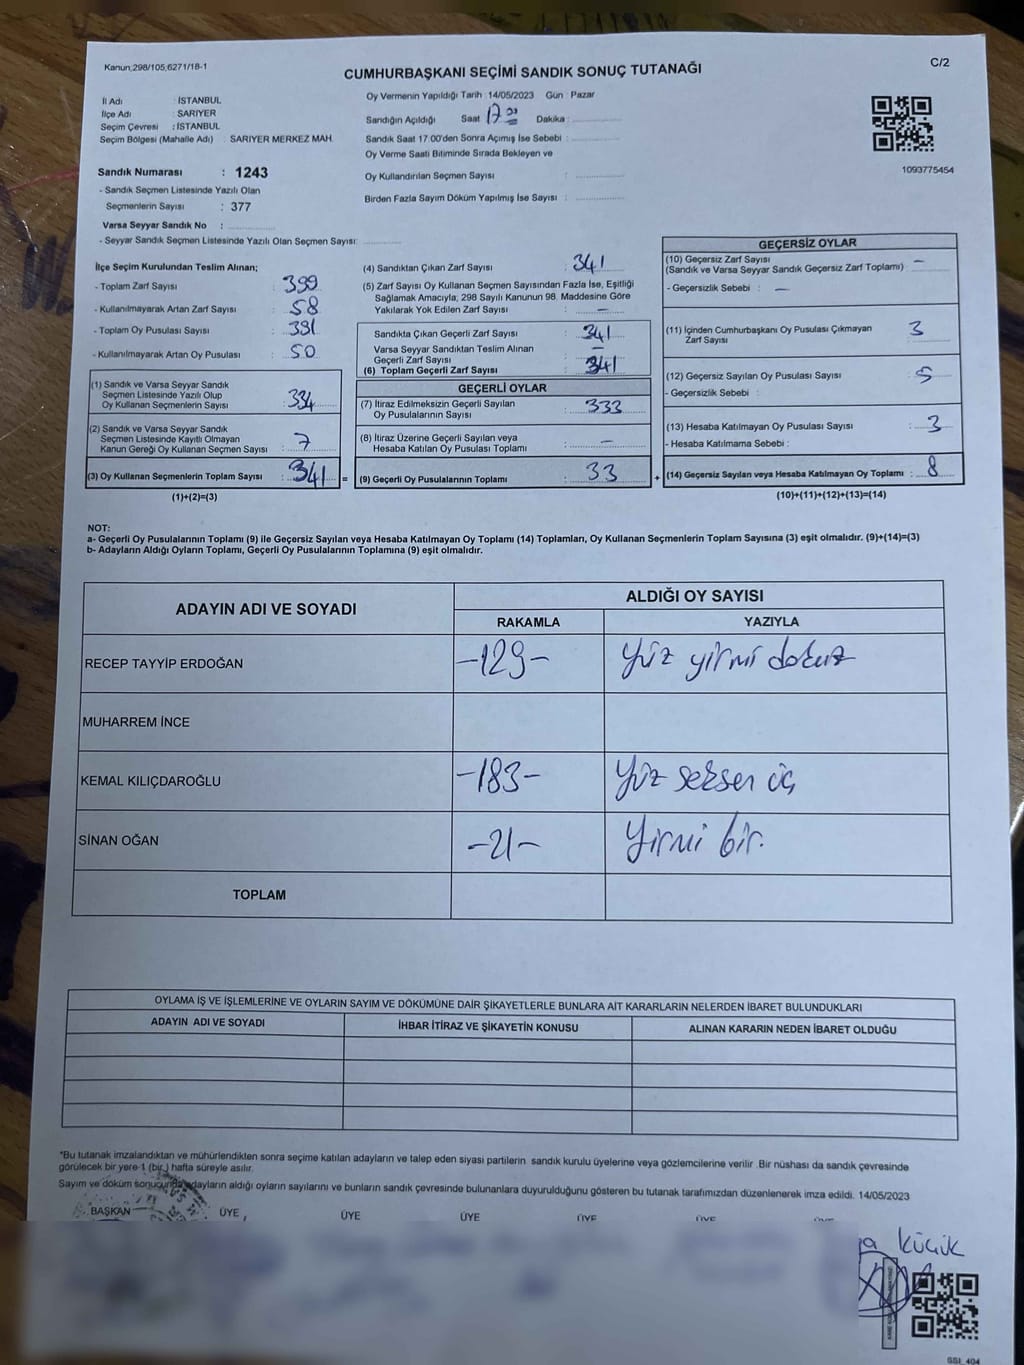 Kanun;298/105;6271/18-1
C/2
CUMHURBAŞKANI SEÇİMİ SANDIK SONUÇ TUTANAĞI
İl Adı : İSTANBUL
İlçe Adı : SARIYER
Seçim Çevresi : İSTANBUL
Seçim Bölgesi (Mahalle Adı) SARIYER MERKEZ MAH.
Oy Vermenin Yapıldığı Tarih :14/05/2023 Gün : Pazar
Sandığın Açıldığı Saat 17 00 Dakika :
Sandık Saat 17:00'den Sonra Açımış İse Sebebi :
Oy Verme Saati Bitiminde Sırada Bekleyen ve
Oy Kullandırılan Seçmen Sayısı :
Birden Fazla Sayım Döküm Yapılmış İse Sayısı :
1093775454
Sandık Numarası : 1243
- Sandık Seçmen Listesinde Yazılı Olan
Seçmenlerin Sayısı : 377
Varsa Seyyar Sandık No :
- Seyyar Sandık Seçmen Listesinde Yazılı Olan Seçmen Sayısı:
İlçe Seçim Kurulundan Teslim Alınan;
- Toplam Zarf Sayısı : 399
- Kullanılmayarak Artan Zarf Sayısı : 58
- Toplam Oy Pusulası Sayısı : 391
- Kullanılmayarak Artan Oy Pusulası : 50
(1) Sandık ve Varsa Seyyar Sandık
Seçmen Listesinde Yazılı Olup
Oy Kullanan Seçmenlerin Sayısı : 334
(2) Sandık ve Varsa Seyyar Sandık
Seçmen Listesinde Kayıtlı Olmayan
Kanun Gereği Oy Kullanan Seçmen Sayısı : 7
(3) Oy Kullanan Seçmenlerin Toplam Sayısı : 341 =
(1)+(2)=(3)
(4) Sandıktan Çıkan Zarf Sayısı : 341
(5) Zarf Sayısı Oy Kullanan Seçmen Sayısından Fazla İse, Eşitliği
Sağlamak Amacıyla; 298 Sayılı Kanunun 98. Maddesine Göre
Yakılarak Yok Edilen Zarf Sayısı : —
Sandıkta Çıkan Geçerli Zarf Sayısı : 341
Varsa Seyyar Sandıktan Teslim Alınan
Geçerli Zarf Sayısı : —
(6) Toplam Geçerli Zarf Sayısı : 341
GEÇERLİ OYLAR
(7) İtiraz Edilmeksizin Geçerli Sayılan
Oy Pusulalarının Sayısı : 333
(8) İtiraz Üzerine Geçerli Sayılan veya
Hesaba Katılan Oy Pusulaları Toplamı : —
(9) Geçerli Oy Pusulalarının Toplamı : 33 +
GEÇERSİZ OYLAR
(10) Geçersiz Zarf Sayısı
(Sandık ve Varsa Seyyar Sandık Geçersiz Zarf Toplamı) : —
- Geçersizlik Sebebi : —
(11) İçinden Cumhurbaşkanı Oy Pusulası Çıkmayan
Zarf Sayısı : 3
(12) Geçersiz Sayılan Oy Pusulası Sayısı : 5
- Geçersizlik Sebebi :
(13) Hesaba Katılmayan Oy Pusulası Sayısı : 3
- Hesaba Katılmama Sebebi :
(14) Geçersiz Sayılan veya Hesaba Katılmayan Oy Toplamı : 8
(10)+(11)+(12)+(13)=(14)
NOT:
a- Geçerli Oy Pusulalarının Toplamı (9) ile Geçersiz Sayılan veya Hesaba Katılmayan Oy Toplamı (14) Toplamları, Oy Kullanan Seçmenlerin Toplam Sayısına (3) eşit olmalıdır. (9)+(14)=(3)
b- Adayların Aldığı Oyların Toplamı, Geçerli Oy Pusulalarının Toplamına (9) eşit olmalıdır.
ADAYIN ADI VE SOYADI ALDIĞI OY SAYISI
RAKAMLA YAZIYLA
RECEP TAYYİP ERDOĞAN -129- Yüz yirmi dokuz
MUHARREM İNCE
KEMAL KILIÇDAROĞLU -183- Yüz seksen üç
SİNAN OĞAN -21- Yirmi bir.
TOPLAM
OYLAMA İŞ VE İŞLEMLERİNE VE OYLARIN SAYIM VE DÖKÜMÜNE DAİR ŞİKAYETLERLE BUNLARA AİT KARARLARIN NELERDEN İBARET BULUNDUKLARI
ADAYIN ADI VE SOYADI İHBAR İTİRAZ VE ŞİKAYETİN KONUSU ALINAN KARARIN NEDEN İBARET OLDUĞU
*Bu tutanak imzalandıktan ve mühürlendikten sonra seçime katılan adayların ve talep eden siyasi partilerin sandık kurulu üyelerine veya gözlemcilerine verilir. Bir nüshası da sandık çevresinde
görülecek bir yere 1 (bir) hafta süreyle asılır.
Sayım ve döküm sonucunda adayların aldığı oyların sayılarını ve bunların sandık çevresinde bulunanlara duyurulduğunu gösteren bu tutanak tarafımızdan düzenlenerek imza edildi. 14/05/2023
BAŞKAN ÜYE ÜYE ÜYE ÜYE ÜYE ÜYE
Küçük
GSI_404